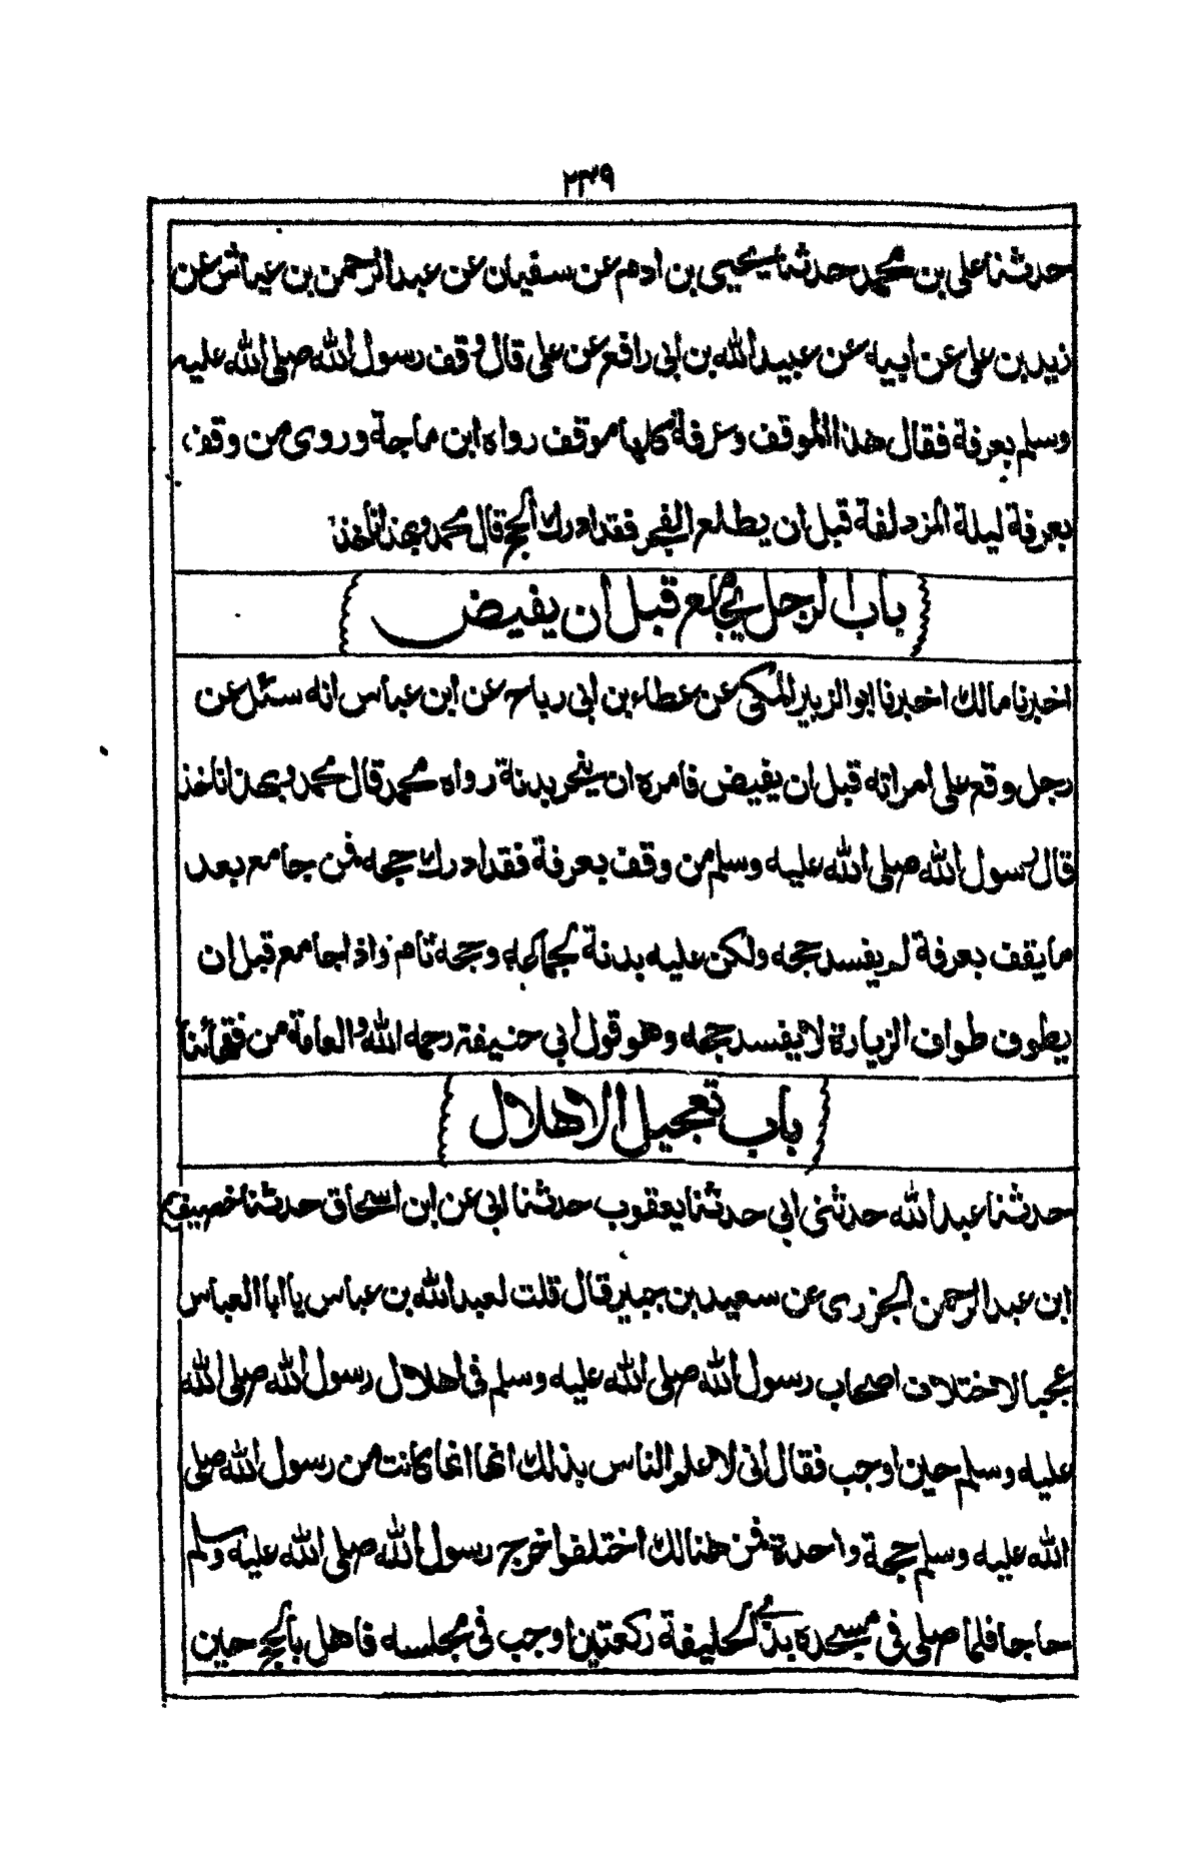 ٢٣٩
حدثنا علی بن محمد حدثنا یحیی بن ادم عن سفیان عن عبدالرحمن بن عیاش عن
زید بن علی عن ابیه عن عبیدالله بن ابی رافع عن علی قال وقف رسول الله صلی الله علیه
وسلم بعرفة فقال هذا الموقف وعرفة کلها موقف رواه ابن ماجة وروی من وقف
بعرفة لیلة المزدلفة قبل ان یطلع الفجر فقد ادرك الحج قال محمد وبهذا ناخذ
باب الرجل یجامع قبل ان یفیض
اخبرنا مالك اخبرنا ابوالزبیر المکی عن عطاء بن ابی رباح عن ابن عباس انه سئل عن
رجل وقع علی امراته قبل ان یفیض فامره ان ینحر بدنة رواه محمد قال محمد وبهذا ناخذ
قال رسول الله صلی الله علیه وسلم من وقف بعرفة فقد ادرك حجه فمن جامع بعد
ما یقف بعرفة لم یفسد حجه ولکن علیه بدنة لجماعه وحجه تام واذا جامع قبل ان
یطوف طواف الزیارة لا یفسد حجه وهو قول ابی حنیفة رحمه الله والعامة من فقهائنا
باب تعجیل الاهلال
حدثنا عبدالله حدثنی ابی حدثنا یعقوب حدثنا ابی عن ابن اسحاق حدثنا خصیف
ابن عبدالرحمن الجزری عن سعید بن جبیر قال قلت لعبدالله بن عباس یا ابا العباس
عجبا لاختلاف اصحاب رسول الله صلی الله علیه وسلم فی اهلال رسول الله صلی الله
علیه وسلم حین اوجب فقال انی لاعلم الناس بذلك انها انما کانت من رسول الله صلی
الله علیه وسلم حجة واحدة فمن هنالك اختلفوا خرج رسول الله صلی الله علیه وسلم
حاجا فلما صلی فی مسجده بذی الحلیفة رکعتین اوجب فی مجلسه فاهل بالحج حین